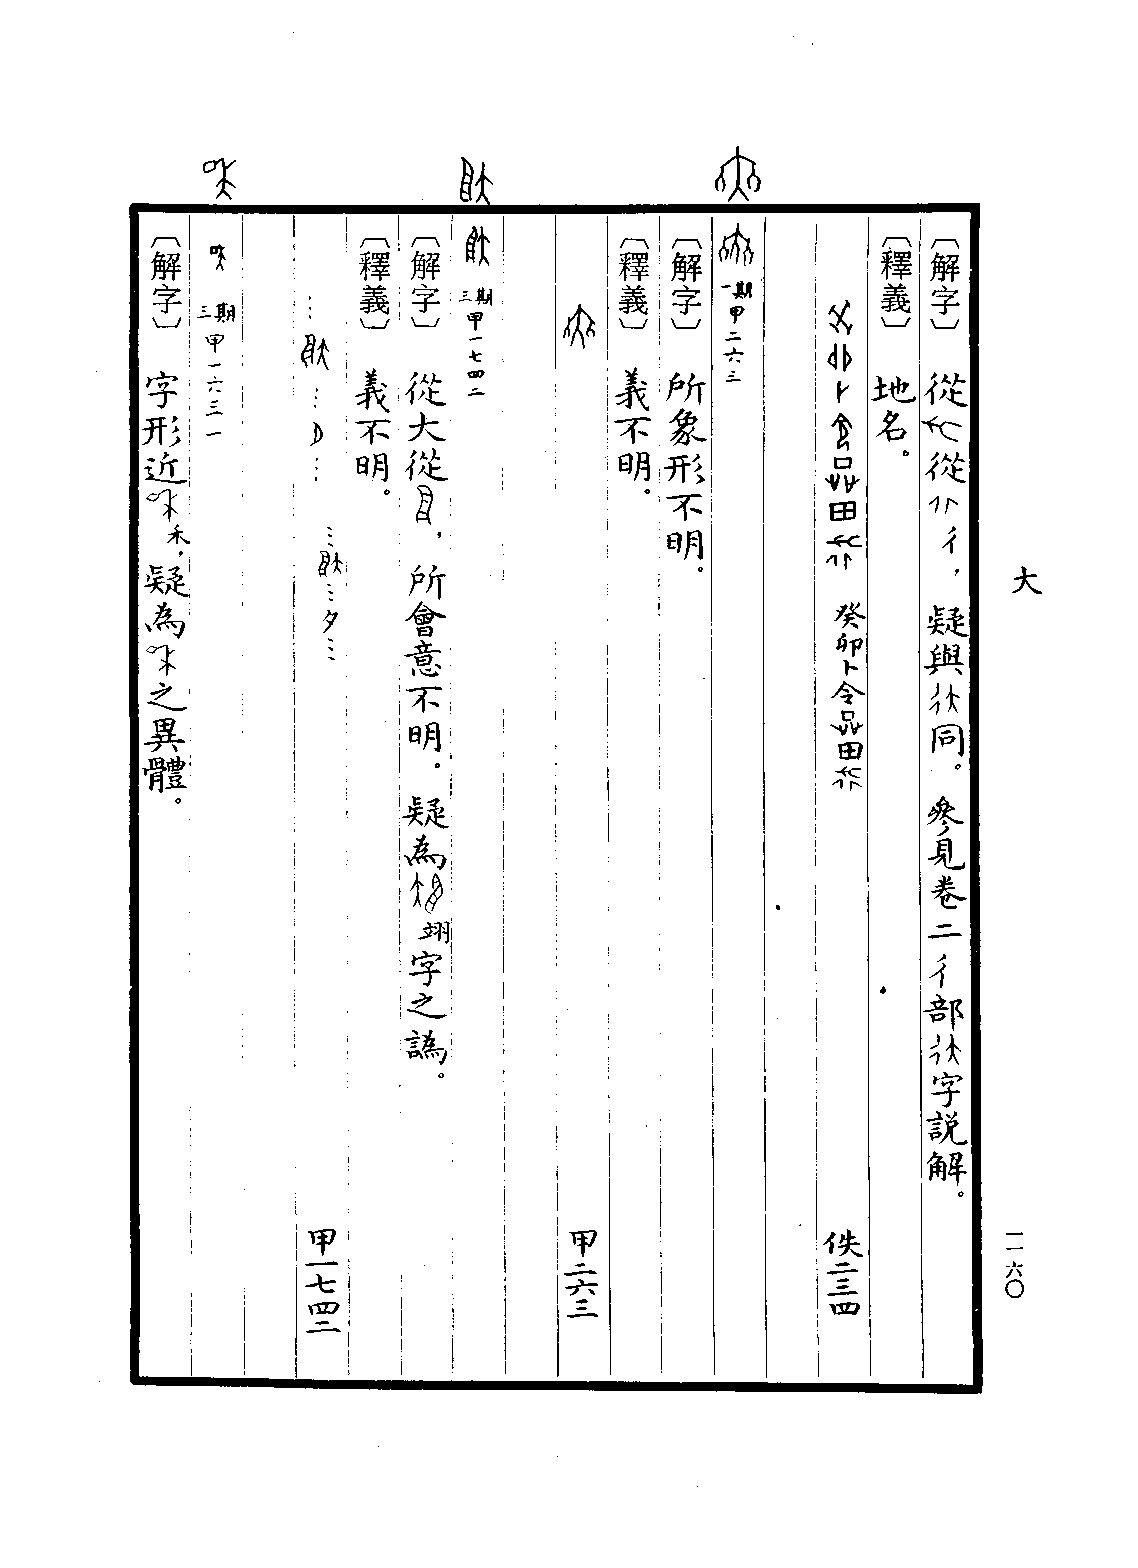 大
一一六〇
〔解字〕 從從彳，疑與同。參見卷二彳部字說解。
〔釋義〕 地名。
癸卯卜令品田 佚二三四
一期 甲二六三
〔解字〕 所象形不明。
〔釋義〕 義不明。
甲二六三
三期 甲一七四二
〔解字〕 從大從，所會意不明。疑為翊字之譌。
〔釋義〕 義不明。
…夕… 甲一七四二
三期 甲一六三一
〔解字〕 字形近禾，疑為之異體。